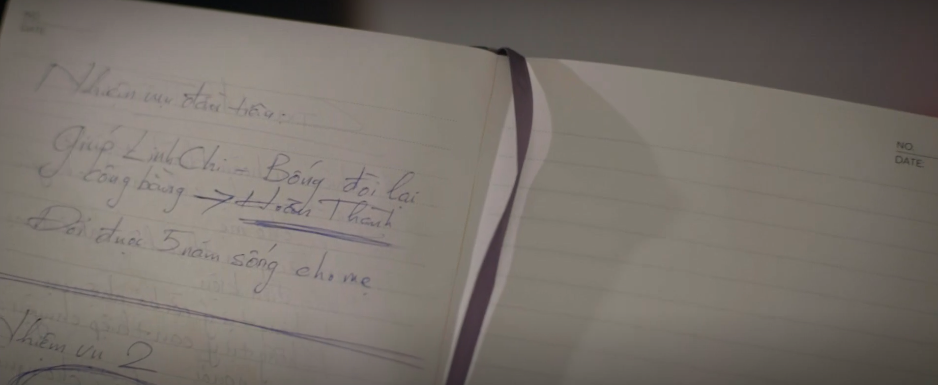 NO.
DATE
Nhiệm vụ đầu tiên:
Giúp Linh Chi - Bống đòi lại
công bằng → Hoàn Thành
Đổi được 5 năm sống cho mẹ
Nhiệm vụ 2
NO.
DATE